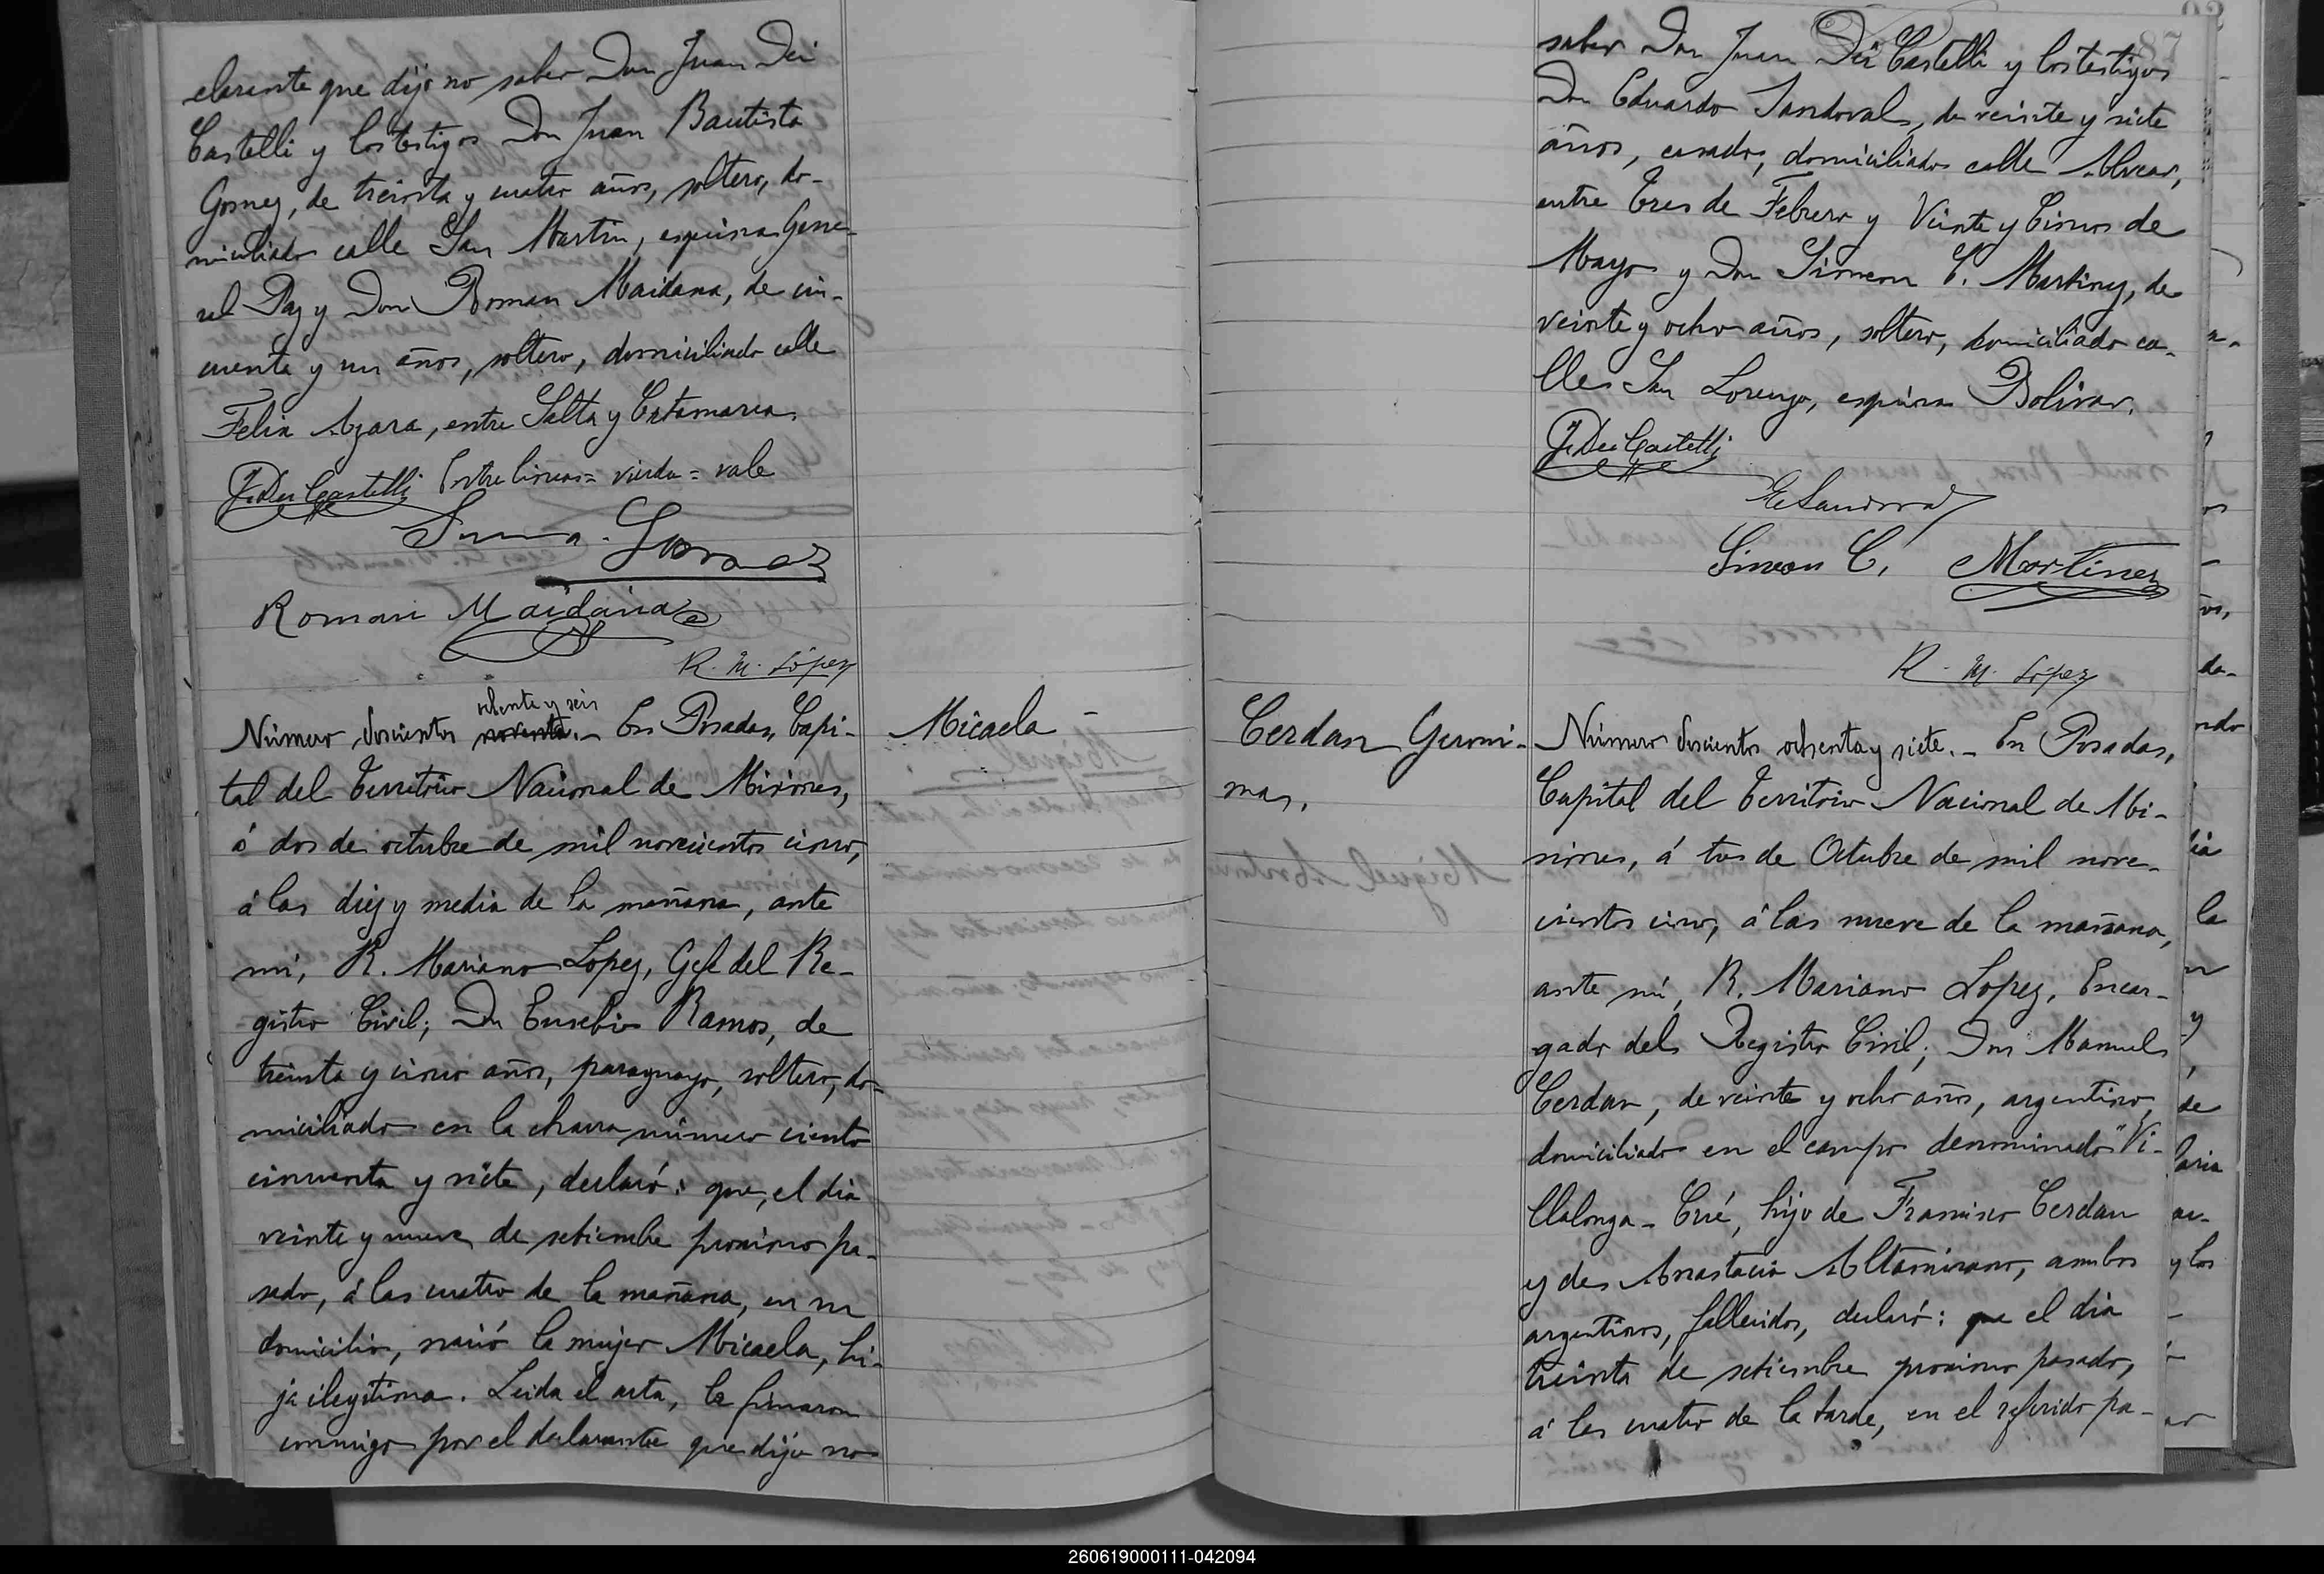 clarante que dijo no saber Don Juan Dei
Castelli y los testigos Don Juan Bautista
Gomez, de treinta y cuatro años, soltero, do-
miciliado calle San Martin, esquina Gene-
ral Paz y Don Roman Maidana, de cin-
cuenta y un años, soltero, domiciliado calle
Felix Azara, entre Salta y Catamarca.
J. Dei Castelli Entre lineas= viuda= vale
Juan Gomez
Roman Maidana
R. M. López
ochenta y seis
Número doscientos noventa.- En Posadas, Capi-
tal del Territorio Nacional de Misiones,
á dos de octubre de mil novecientos cinco,
á las diez y media de la mañana, ante
mi, R. Mariano Lopez, Gefe del Re-
gistro Civil; Don Eusebio Ramos, de
treinta y cinco años, paraguayo, soltero, do-
miciliado en la chacra número ciento
cincuenta y siete, declaró: que, el dia
veinte y nueve de setiembre proximo pa-
sado, á las cuatro de la mañana, en su
domicilio, nació la mujer Micaela, hi-
ja ilegitima. Leida el acta, la firmaron
conmigo por el declarante que dijo no
Micaela
87
saber Don Juan Dei Castelli y los testigos
Don Eduardo Sandoval, de veinte y siete
años, casado, domiciliado calle Alvear,
entre Tres de Febrero y Veinte y Cinco de
Mayo y Don Simeon C. Martinez, de
veinte y ocho años, soltero, domiciliado ca-
lle San Lorenzo, esquina Bolivar.
J. Dei Castelli
E Sandoval
Simeon C. Martinez
R. M. López
Cerdan Geroni-
mas,
Número doscientos ochenta y siete.- En Posadas,
Capital del Territorio Nacional de Mi-
siones, á tres de Octubre de mil nove-
cientos cinco, á las nueve de la mañana,
ante mí, R. Mariano Lopez, Encar-
gado del Registro Civil; Don Manuel
Cerdan, de veinte y ocho años, argentino,
domiciliado en el campo denominado "Vi-
llalonga-Cué, hijo de Francisco Cerdan
y de Anastacia Altamirano, ambos
argentinos, fallecidos, declaró: que el dia
treinta de setiembre proximo pasado,
á las cuatro de la tarde, en el referido pa-
260619000111-042094